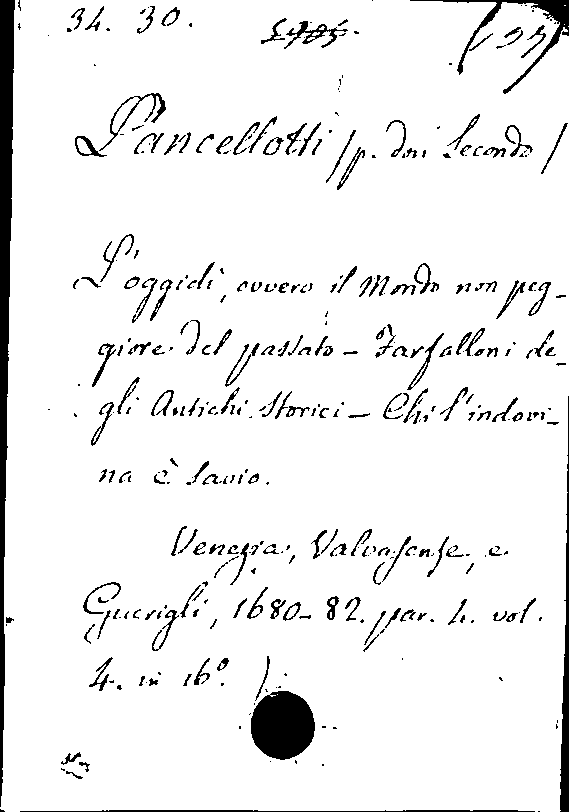 34. 30.
Lancellotti /p. don Secondo/
L'oggidi, ovvero il Mondo non peg-
giore del passato - Farfalloni de-
gli Antichi Storici - Chi l'indovi-
na è savio.
Venezia, Valvasense, e
Guerigli, 1680-82. par. 4. vol.
4. in 16º.